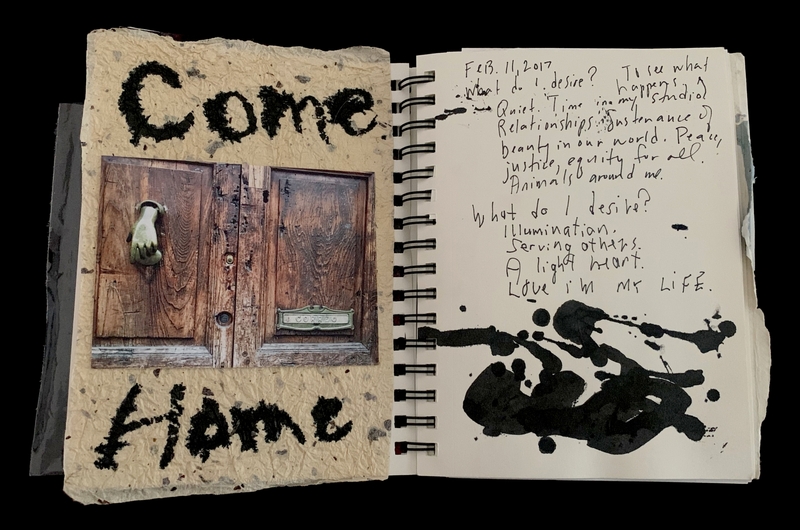 Come
Home
FEB. 11, 2017
What do I desire? To see what
happens.
Quiet. Time in my studio.
Relationships. Sustenance of
beauty in our world. Peace,
justice, equity for all.
Animals around me.
What do I desire?
Illumination.
Serving others.
A light heart.
LOVE IN MY LIFE.